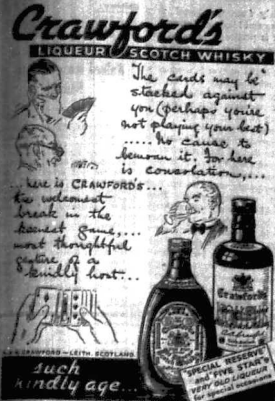 Crawford's
LIQUEUR SCOTCH WHISKY
The cards may be
stacked against
you (perhaps you're
not playing your best)
..... No cause to
bemoan it. For here
is consolation,...
...here is CRAWFORD'S...
the welcomest
break in the
keenest game,...
most thoughtful
gesture of a
kindly host...
A & A CRAWFORD — LEITH, SCOTLAND.
such
kindly age...
Crawford's
"SPECIAL RESERVE"
and "FIVE STAR"
VERY OLD LIQUEUR
for special occasions